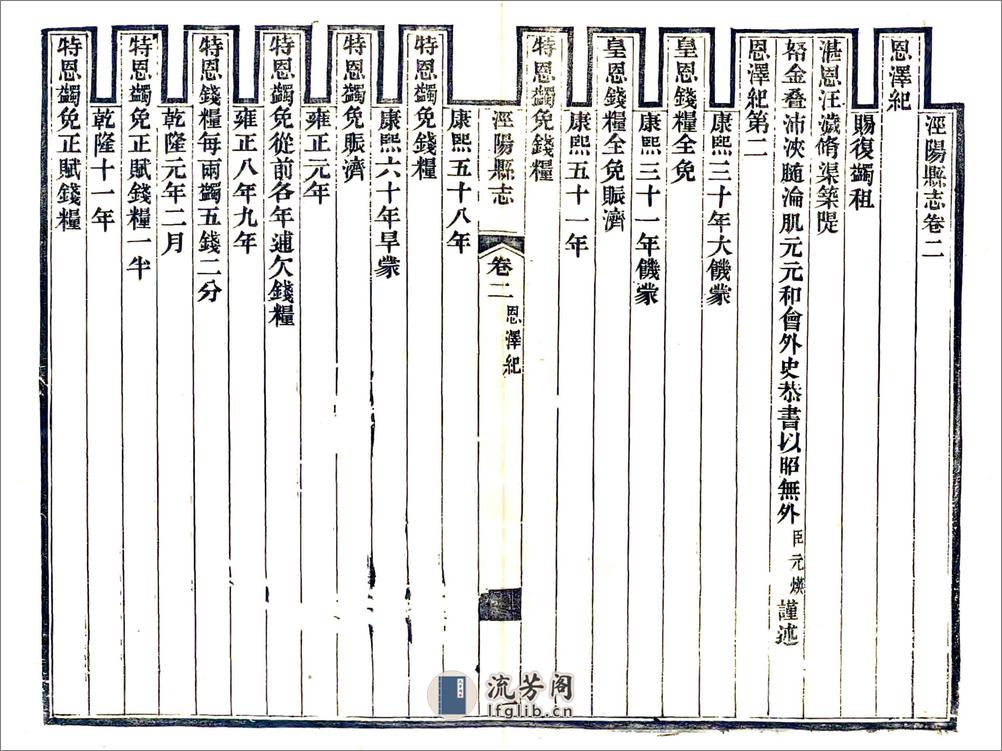 涇陽縣志卷二
恩澤紀
賜復蠲租
湛恩汪濊脩渠築隄
帑金叠沛浹髓淪肌元元和會外史恭書以昭無外臣元煐謹述
恩澤紀第二
康熙三十年大饑蒙
皇恩錢糧全免
康熙三十一年饑蒙
皇恩錢糧全免賑濟
康熙五十一年
特恩蠲免錢糧
涇陽縣志 卷二 恩澤紀 一
康熙五十八年
特恩蠲免錢糧
康熙六十年旱蒙
特恩蠲免賑濟
雍正元年
特恩蠲免從前各年逋欠錢糧
雍正八年九年
特恩錢糧每兩蠲五錢二分
乾隆元年二月
特恩蠲免正賦錢糧一半
乾隆十一年
特恩蠲免正賦錢糧
流芳阁
lfglib.cn